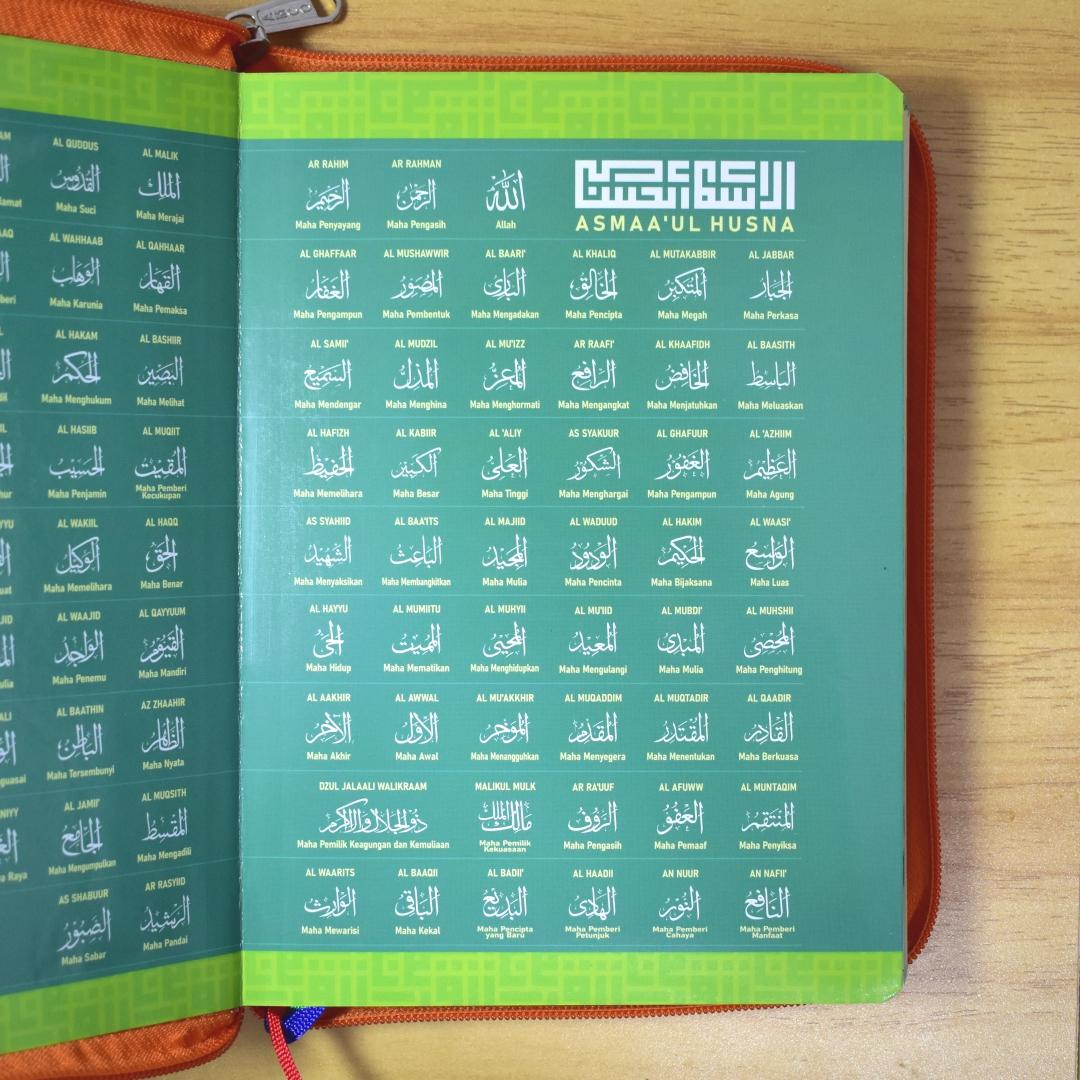 الأسماء الحسنى
ASMAA'UL HUSNA
AR RAHIM AR RAHMAN
الله الرحمن الرحيم
Maha Penyayang Maha Pengasih Allah
AL GHAFFAAR AL MUSHAWWIR AL BAARI' AL KHALIQ AL MUTAKABBIR AL JABBAR
الجبار المتكبر الخالق البارئ المصور الغفار
Maha Pengampun Maha Pembentuk Maha Mengadakan Maha Pencipta Maha Megah Maha Perkasa
AL SAMII' AL MUDZIL AL MU'IZZ AR RAAFI' AL KHAAFIDH AL BAASITH
الباسط الخافض الرافع المعز المذل السميع
Maha Mendengar Maha Menghina Maha Menghormati Maha Mengangkat Maha Menjatuhkan Maha Meluaskan
AL HAFIZH AL KABIIR AL 'ALIY AS SYAKUUR AL GHAFUUR AL 'AZHIIM
العظيم الغفور الشكور العلي الكبير الحفيظ
Maha Memelihara Maha Besar Maha Tinggi Maha Menghargai Maha Pengampun Maha Agung
AS SYAHIID AL BAA'ITS AL MAJIID AL WADUUD AL HAKIM AL WAASI'
الواسع الحكيم الودود المجيد الباعث الشهيد
Maha Menyaksikan Maha Membangkitkan Maha Mulia Maha Pencinta Maha Bijaksana Maha Luas
AL HAYYU AL MUMIITU AL MUHYII AL MU'IID AL MUBDI' AL MUHSHII
المحصي المبدئ المعيد المحيي المميت الحي
Maha Hidup Maha Mematikan Maha Menghidupkan Maha Mengulangi Maha Mulia Maha Penghitung
AL AAKHIR AL AWWAL AL MU'AKKHIR AL MUQADDIM AL MUQTADIR AL QAADIR
القادر المقتدر المقدم المؤخر الأول الآخر
Maha Akhir Maha Awal Maha Menangguhkan Maha Menyegera Maha Menentukan Maha Berkuasa
DZUL JALAALI WALIKRAAM MALIKUL MULK AR RA'UUF AL AFUWW AL MUNTAQIM
المنتقم العفو الرؤوف مالك الملك ذو الجلال والإكرام
Maha Pemilik Keagungan dan Kemuliaan Maha Pemilik Kekuasaan Maha Pengasih Maha Pemaaf Maha Penyiksa
AL WAARITS AL BAAQII AL BADII' AL HAADII AN NUUR AN NAFII'
النافع النور الهادي البديع الباقي الوارث
Maha Mewarisi Maha Kekal Maha Pencipta yang Baru Maha Pemberi Petunjuk Maha Pemberi Cahaya Maha Pemberi Manfaat
AL QUDDUS AL MALIK
الملك القدوس
Maha Suci Maha Merajai
AL WAHHAAB AL QAHHAAR
القهار الوهاب
Maha Karunia Maha Pemaksa
AL HAKAM AL BASHIIR
البصير الحكم
Maha Menghukum Maha Melihat
AL HASIIB AL MUQIIT
المقيت الحسيب
Maha Penjamin Maha Pemberi Kecukupan
AL WAKIIL AL HAQQ
الحق الوكيل
Maha Memelihara Maha Benar
AL WAAJID AL QAYYUUM
القيوم الواجد
Maha Penemu Maha Mandiri
AL BAATHIN AZ ZHAAHIR
الظاهر الباطن
Maha Tersembunyi Maha Nyata
AL JAMII' AL MUQSITH
المقسط الجامع
Maha Mengumpulkan Maha Mengadili
AS SHABUUR AR RASYIID
الرشيد الصبور
Maha Sabar Maha Pandai